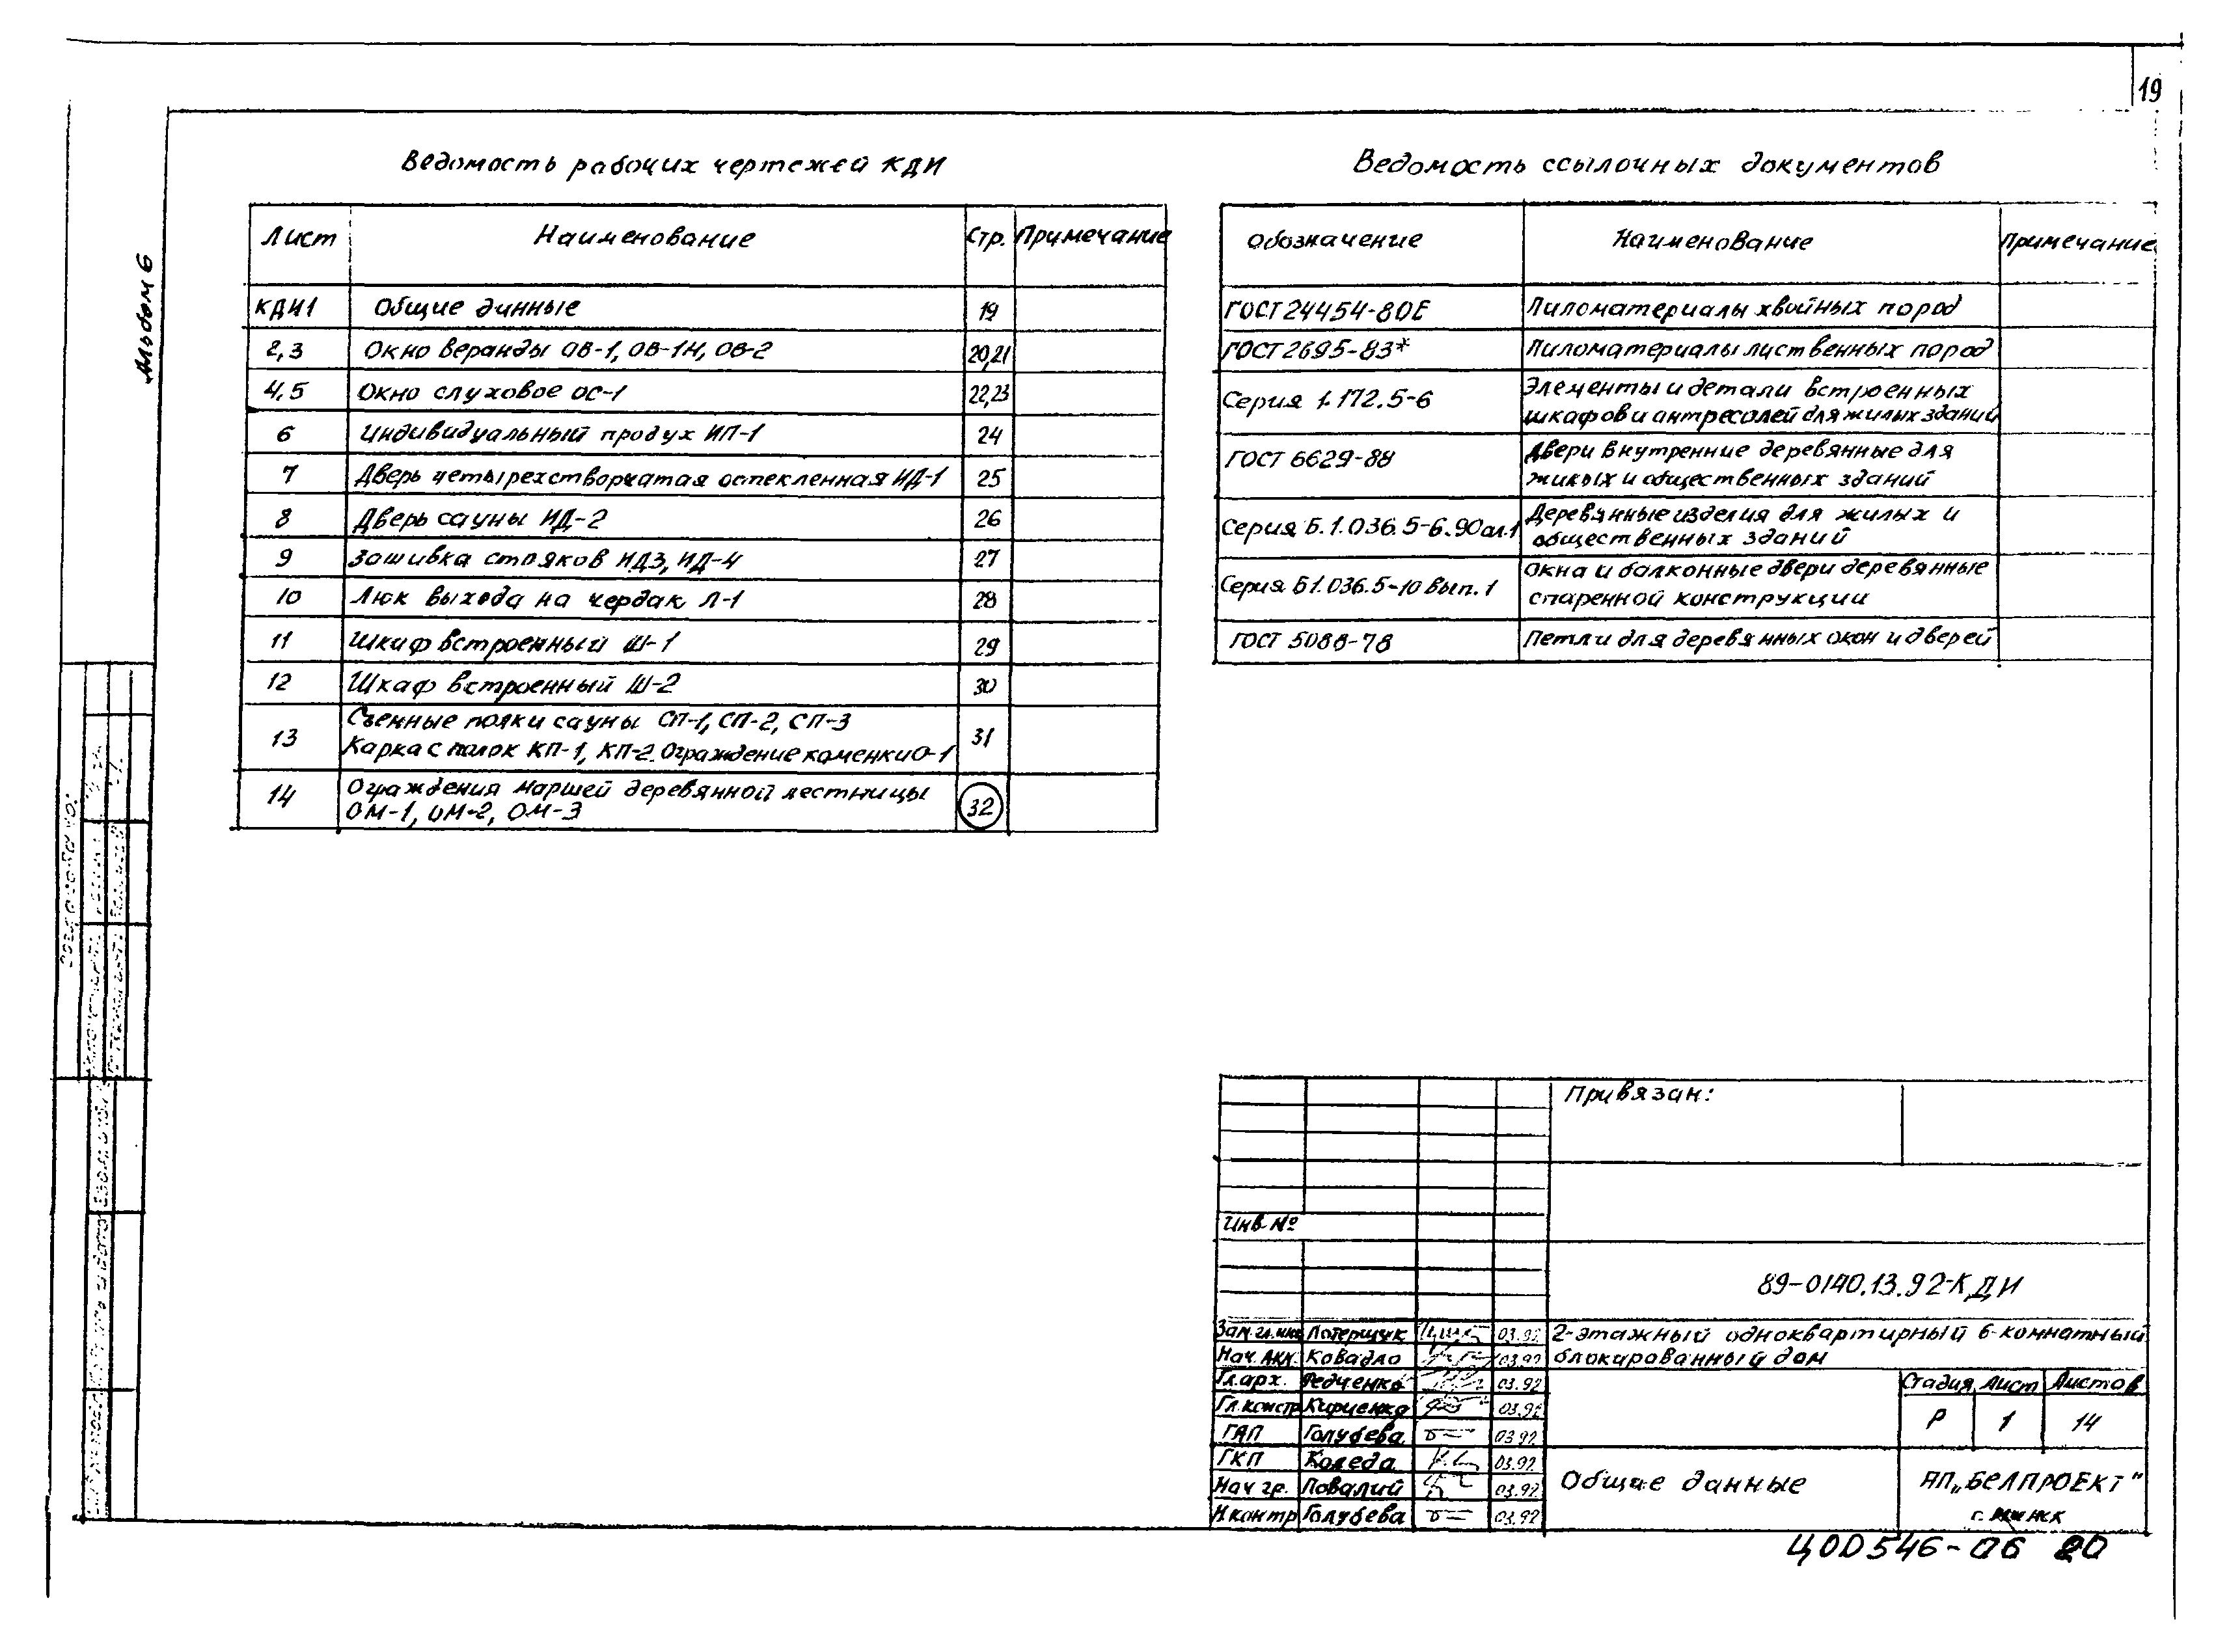 19
Альбом 6
Ведомость рабочих чертежей КДИ
Лист Наименование Стр. Примечание
КДИ1 Общие данные 19
2,3 Окно веранды ОВ-1, ОВ-1Н, ОВ-2 20,21
4,5 Окно слуховое ОС-1 22,23
6 Индивидуальный продух ИП-1 24
7 Дверь четырехстворчатая остекленная ИД-1 25
8 Дверь сауны ИД-2 26
9 Зашивка стояков ИД3, ИД-4 27
10 Люк выхода на чердак Л-1 28
11 Шкаф встроенный Ш-1 29
12 Шкаф встроенный Ш-2 30
13 Съемные полки сауны СП-1, СП-2, СП-3
Каркас полок КП-1, КП-2. Ограждение каменки О-1 31
14 Ограждения маршей деревянной лестницы
ОМ-1, ОМ-2, ОМ-3 32
Ведомость ссылочных документов
Обозначение Наименование Примечание
ГОСТ 24454-80Е Пиломатериалы хвойных пород
ГОСТ 2695-83* Пиломатериалы лиственных пород
Серия 1.172.5-6 Элементы и детали встроенных
шкафов и антресолей для жилых зданий
ГОСТ 6629-88 Двери внутренние деревянные для
жилых и общественных зданий
Серия Б.1.036.5-6.90 ал.1 Деревянные изделия для жилых и
общественных зданий
Серия Б1.036.5-10 вып.1 Окна и балконные двери деревянные
спаренной конструкции
ГОСТ 5088-78 Петли для деревянных окон и дверей
Привязан:
Инв №
89-0140.13.92-КДИ
Зам.гл.инж Потерщук 03.92
Нач. АКМ. Ковадло 03.92
Гл.арх. Федченко 03.92
Гл.констр Кириенко 03.92
ГАП Голубева 03.92
ГКП Коледа 03.92
Нач гр. Повалий 03.92
Н.контр Голубева 03.92
2-этажный одноквартирный 6-комнатный
блокированный дом
Стадия Лист Листов
Р 1 14
Общие данные
АП „БЕЛПРОЕКТ"
г. Минск
Ц00546-06 20